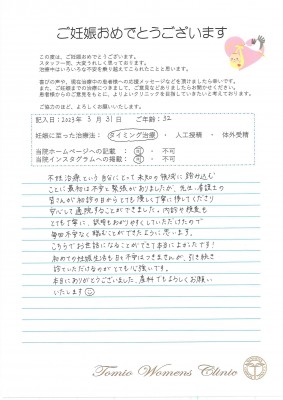 ご妊娠おめでとうございます
この度は、ご妊娠おめでとうございます。
スタッフ一同、大変うれしく思っております。
治療中はいろいろな不安を乗り越えてこられたことと思います。
喜びの声や、現在治療中の患者様への応援メッセージなどを頂けましたら幸いです。
また、ご妊娠までの治療につきまして、ご意見などありましたらお聞かせください。
患者様からのご意見をもとに、よりよいクリニックを目指していきたいと考えております。
ご協力のほど、よろしくお願いいたします。
記入日：2023年 3月 31日 ご年齢：32
妊娠に至った治療法：タイミング治療・人工授精・体外受精
当院ホームページへの記載：可・不可
当院インスタグラムへの掲載：可・不可
不妊治療という自分にとって未知の領域に踏み込む
ことに最初は不安と緊張がありましたが、先生、看護士の
皆さんが初診の日からとても優しく丁寧に接してくださり
安心して通院することができました。内診や検査も
とても丁寧に、説明もわかりやすくしていただけたので
毎回不安なく臨むことができたように思います。
こちらでお世話になることができて本当によかったです！
初めての妊娠生活も日々不安はつきませんが、引き続き
診ていただけるのがとても心強いです。
本当にありがとうございました。産科でもよろしくお願い
いたします
Tomio Womens Clinic